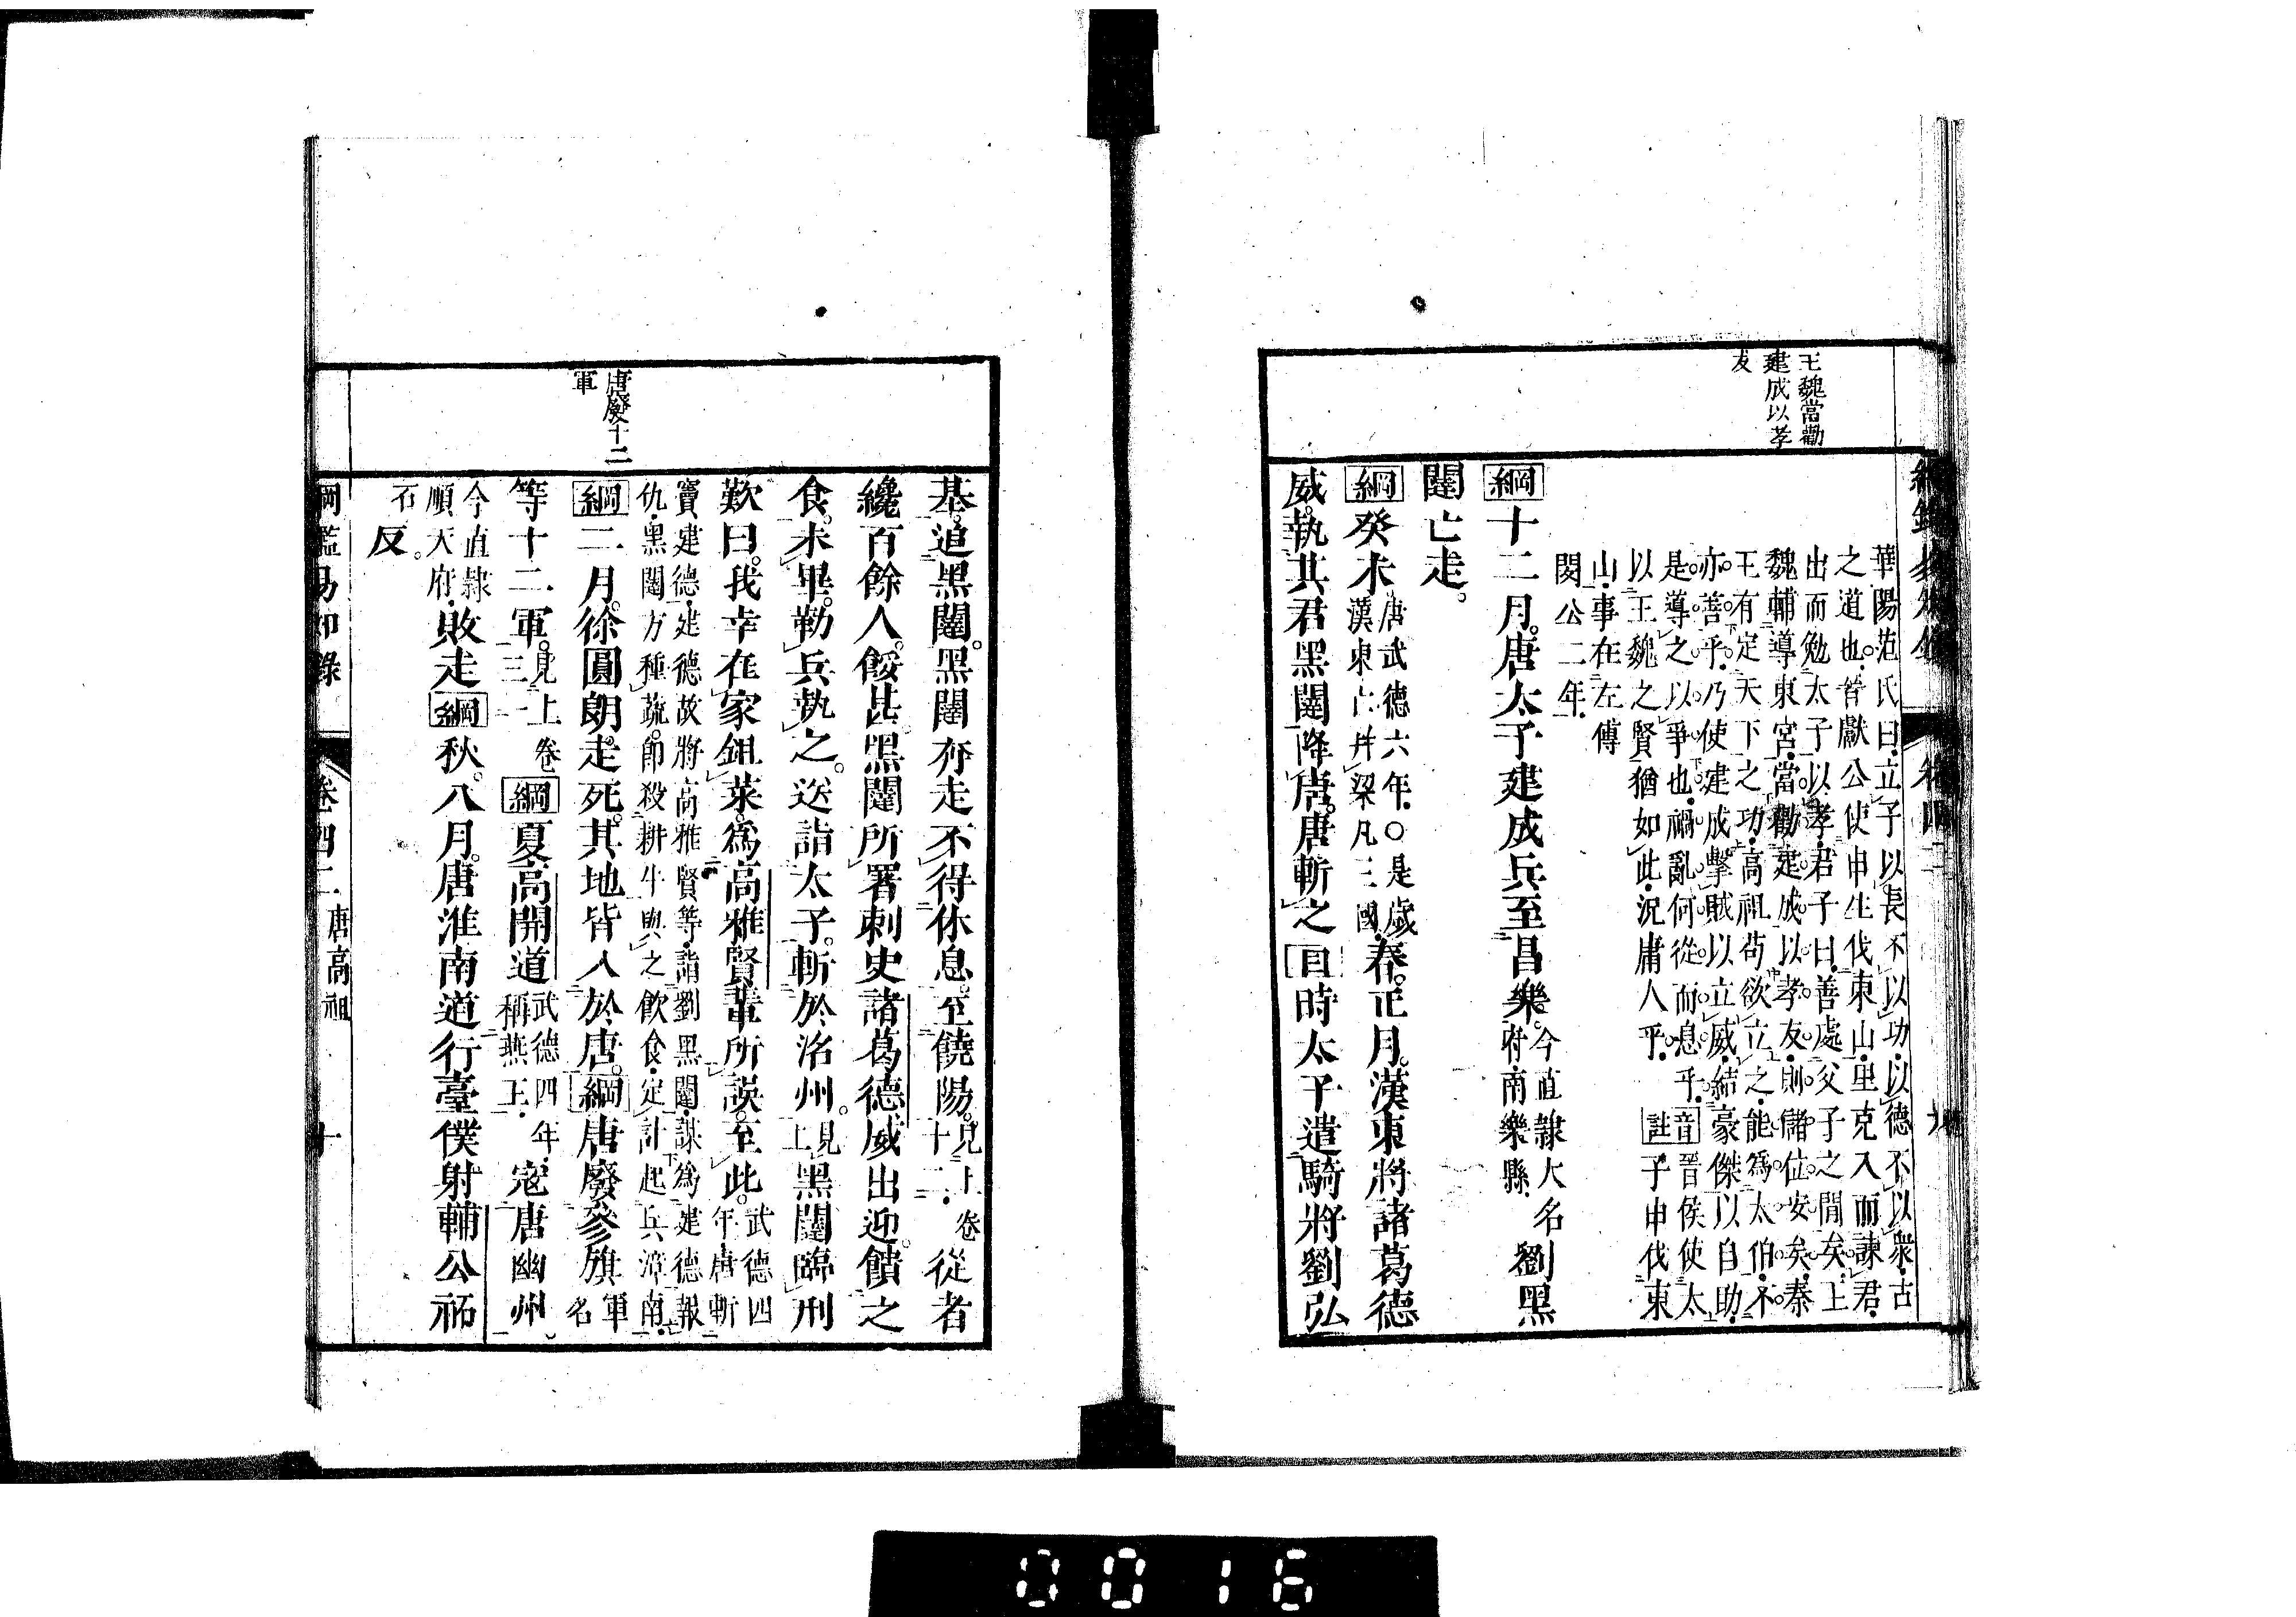 王魏當勸
建成以孝
友
華陽范氏曰立子以長不以功以德不以衆古
之道也晉獻公使申生伐東山里克入而諫君
出而勉太子以孝君子曰善處父子之閒矣上
魏輔導東宮當勸建成以孝友則儲位安矣秦
王有定天下之功高祖苟欲立之能爲太伯不
亦善乎乃使建成擊賊以立威結豪傑以自助
是導之以爭也禍亂何從而息乎音註晉侯使太
以王魏之賢猶如此況庸人乎子申伐東
山事在左傳
閔公二年
綱十二月唐太子建成兵至昌樂今直隸大名府南樂縣劉黑
闥亡走。
綱癸未唐武德六年○是歲漢東亡幷梁凡三國春正月漢東將諸葛德
威執其君黑闥降唐唐斬之目時太子遣騎將劉弘
基追黑闥黑闥奔走不得休息至饒陽見上卷十二從者
纔百餘人餒甚黑闥所署刺史諸葛德威出迎饋之
食未畢勒兵執之送詣太子斬於洺州見上黑闥臨刑
歎曰我幸在家鉏菜爲高雅賢輩所誤至此武德四年唐斬
竇建德建德故將高雅賢等詣劉黑闥謀爲建德報
仇黑闥方種蔬卽殺耕牛與之飲食定計起兵漳南
唐廢十二
軍
綱二月徐圓朗走死其地皆入於唐綱唐廢參旗軍名
等十二軍見上卷三一綱夏高開道武德四年稱燕王寇唐幽州
今直隸
順天府敗走綱秋八月唐淮南道行臺僕射輔公祏
石反。
綱鑑易知錄 卷四二 唐高祖 十
0016